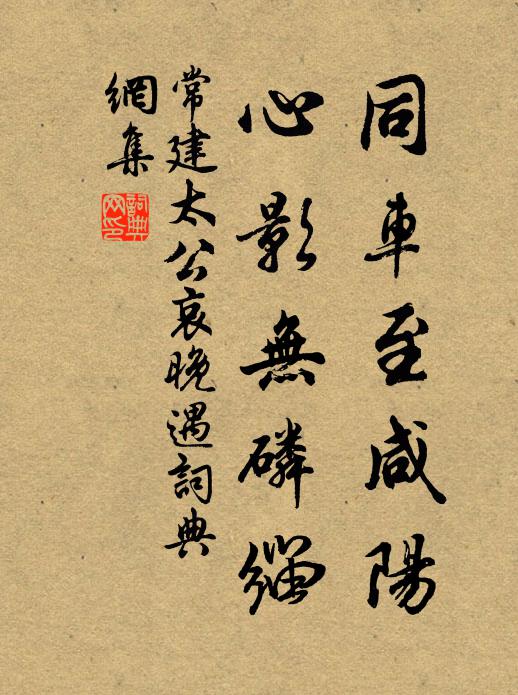 同車至咸陽
心影無磷緇
常建太公哀晚遇詞典
網集
詞典網印